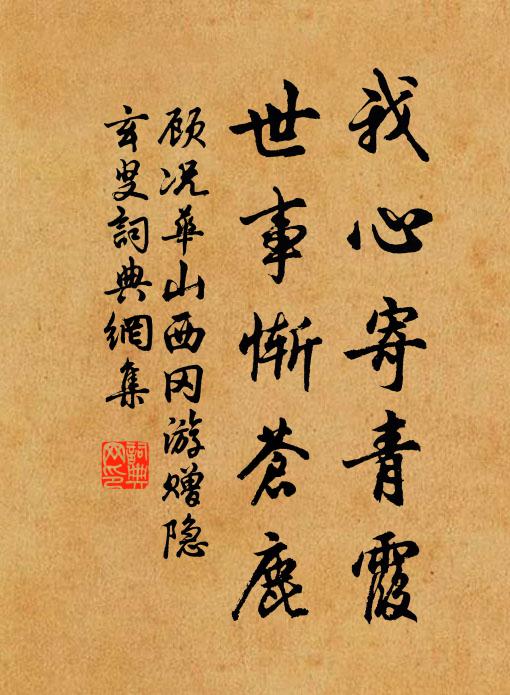 我心寄青霞
世事惭蒼鹿
顾况華山西冈游赠隐
玄叟詞典網集
詞典网印